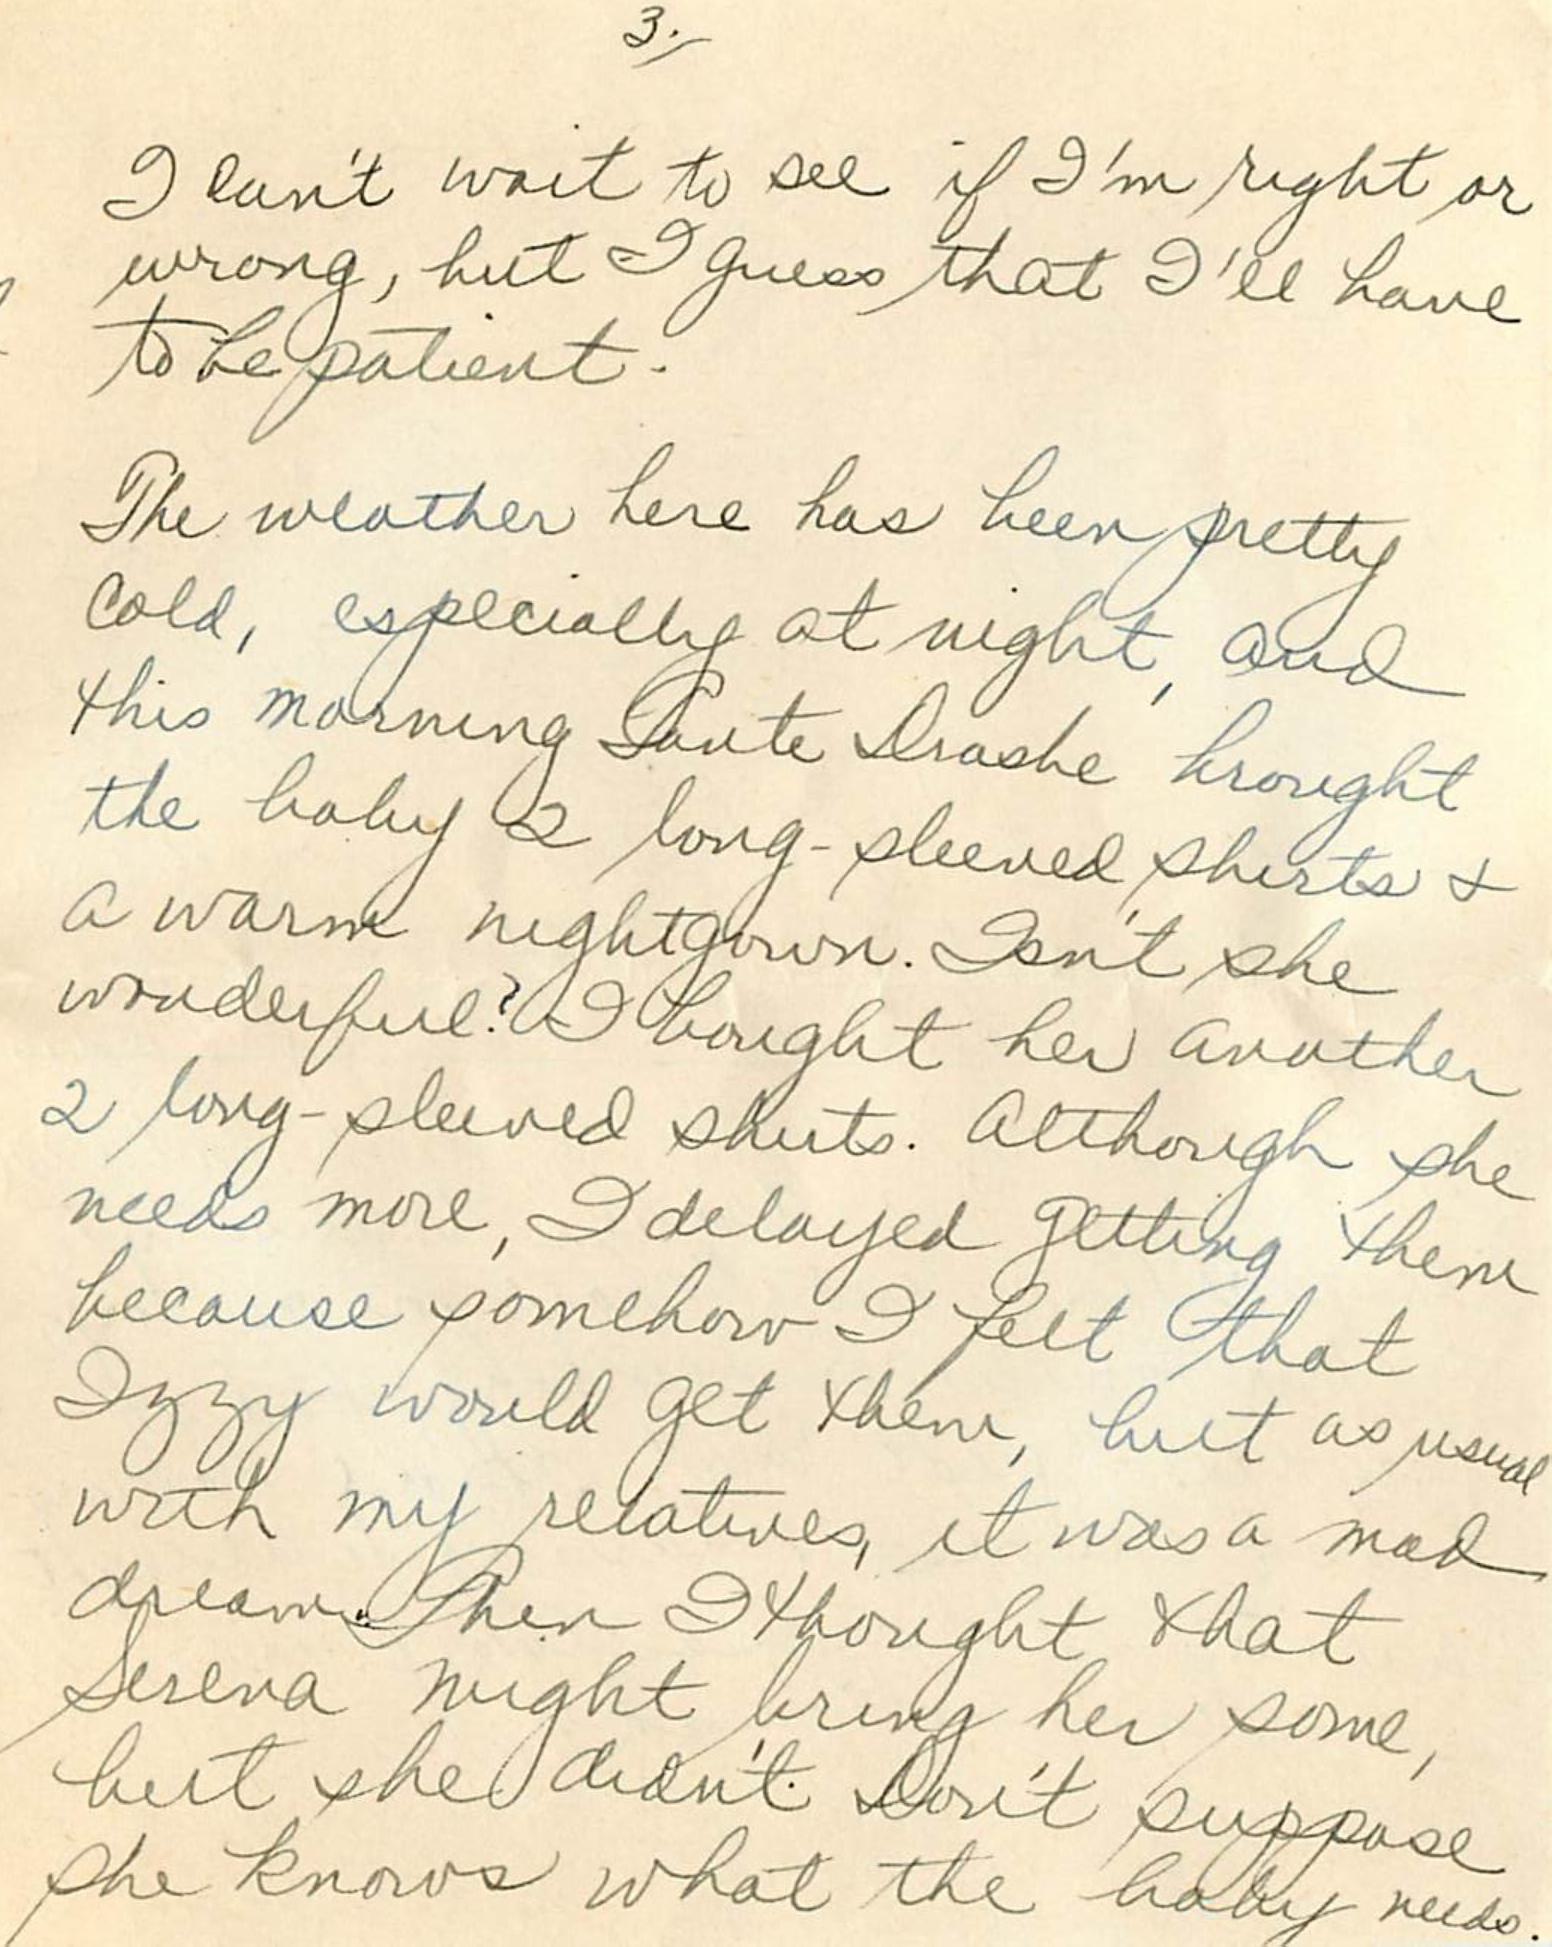 3./
I can't wait to see if I'm right or
wrong, but I guess that I'll have
to be patient.
The weather here has been pretty
cold, especially at night, and
this morning Tante Drashe brought
the baby 2 long-sleeved shirts +
a warm nightgown. Isn't she
wonderful? I bought her another
2 long-sleeved shirts. Although she
needs more, I delayed getting them
because somehow I felt that
Izzy would get them, but as usual
with my relatives, it was a mad
dream. Then I thought that
Serena might bring her some,
but she didn't. Don't suppose
she knows what the baby needs.